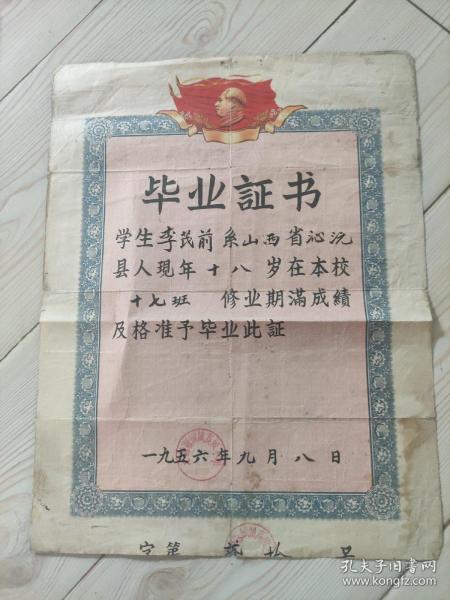 毕业証书
学生李茂前系山西省沁沅
县人现年十八岁在本校
十七班 修业期满成绩
及格准予毕业此証
一九五六年九月八日
字第 贰拾 号
孔夫子旧书网
kongfz.com